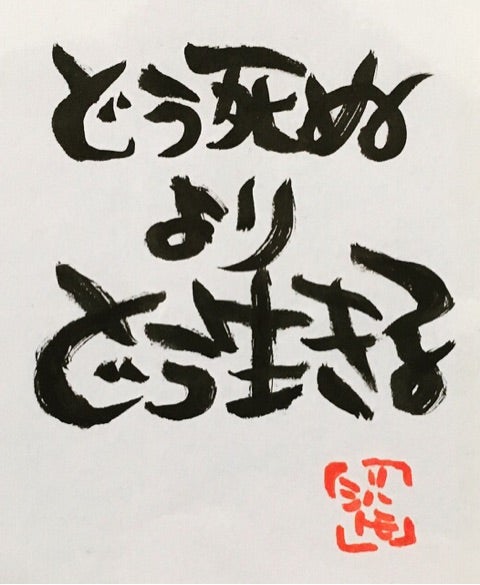 どう死ぬ
より
どう生きる